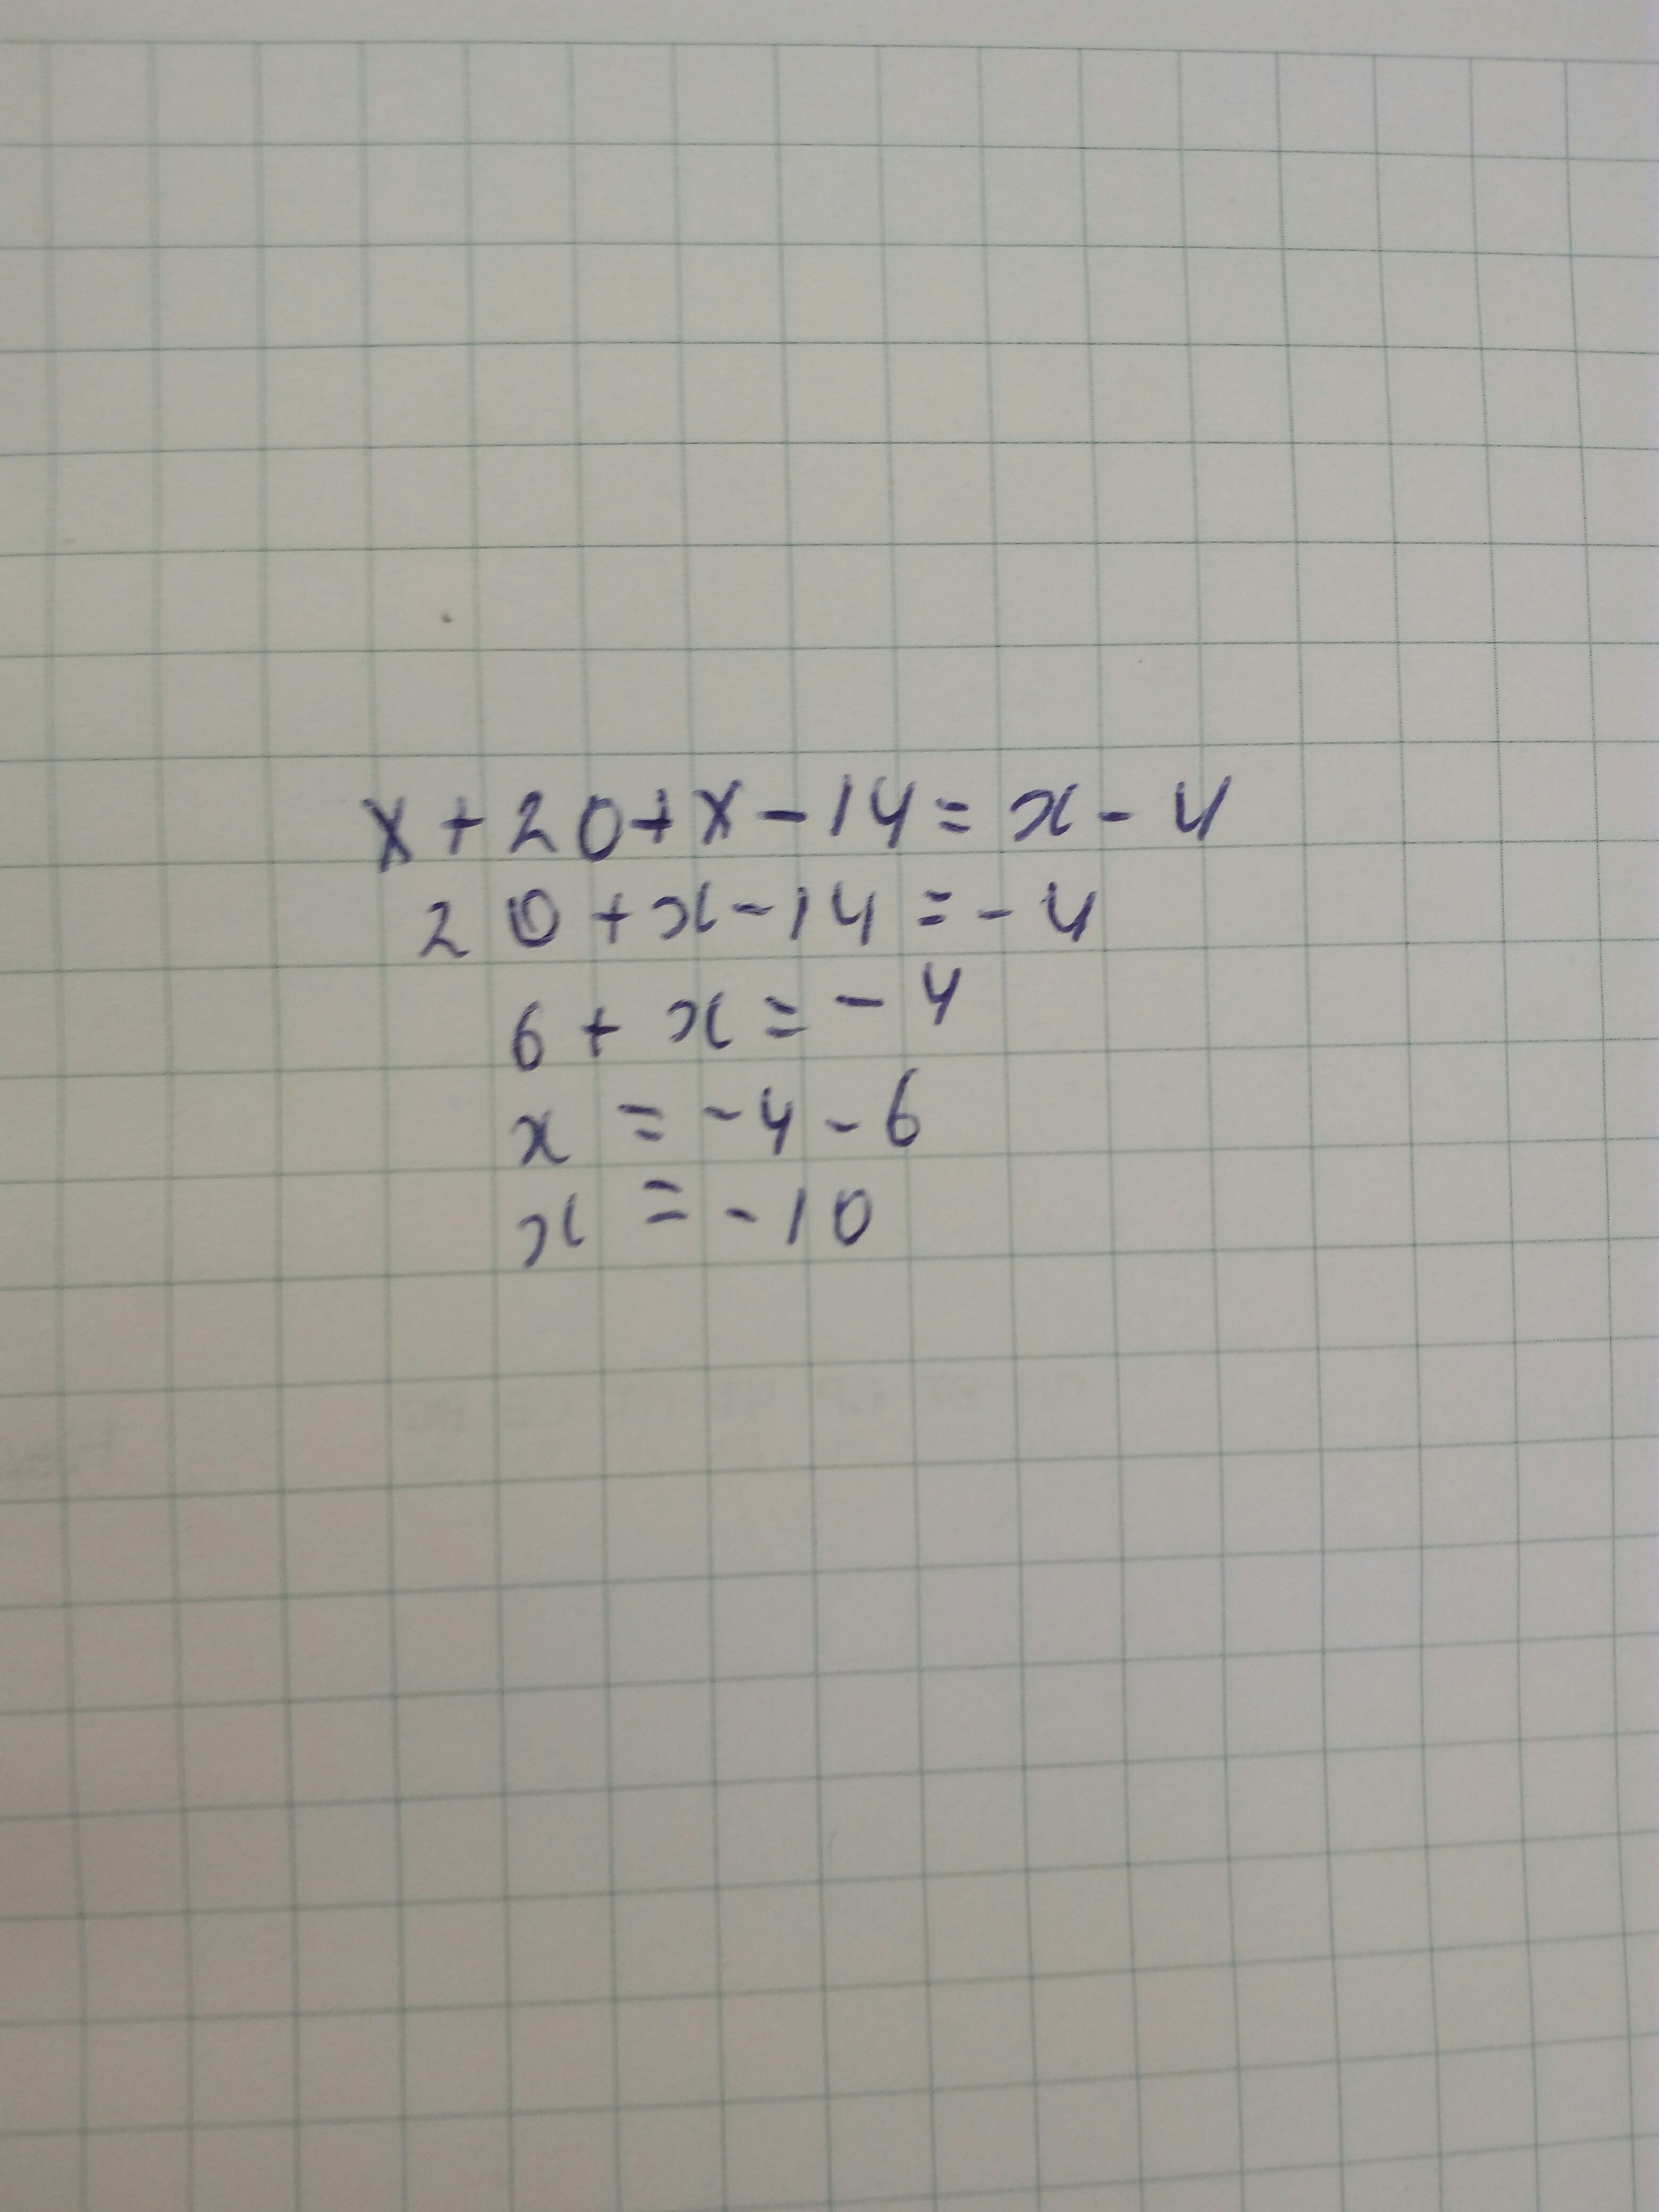 x + 20 + x - 14 = x - 4
20 + x - 14 = - 4
6 + x = - 4
x = - 4 - 6
x = - 10